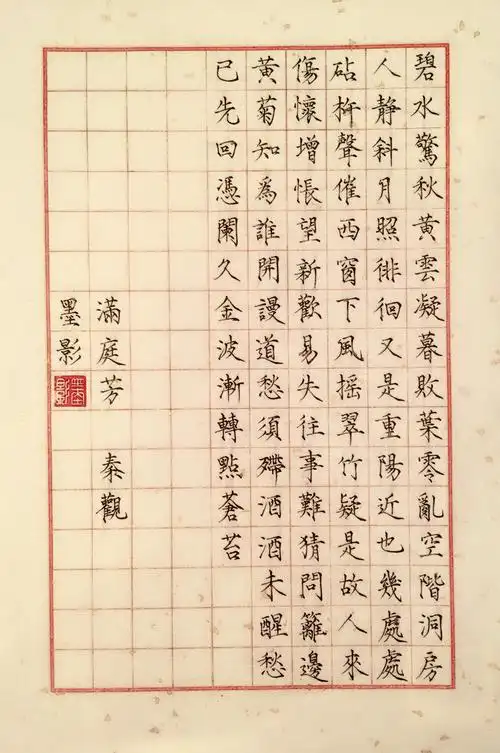 碧水驚秋黃雲凝暮敗葉零亂空階洞房
人靜斜月照徘徊又是重陽近也幾處處
砧杵聲催西窗下風搖翠竹疑是故人來
傷懷增悵望新歡易失往事難猜問籬邊
黃菊知為誰開謾道愁須殢酒酒未醒愁
已先回憑闌久金波漸轉點蒼苔
滿庭芳 秦觀
墨影
墨影